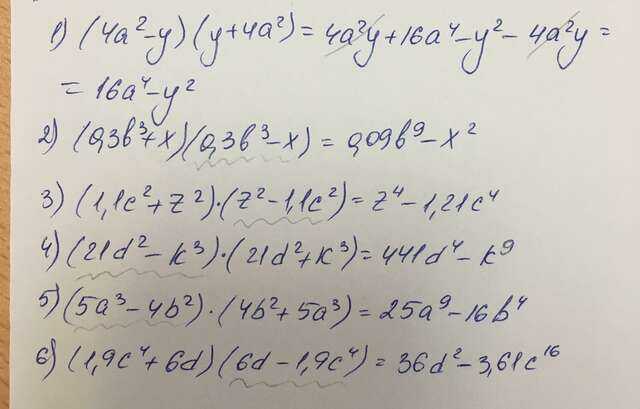 1) (4a²-y)(y+4a²)=4a²y+16a⁴-y²-4a²y=
=16a⁴-y²
2) (0,3b³+x)(0,3b³-x)=0,09b⁹-x²
3) (1,1c²+z²)·(z²-1,1c²)=z⁴-1,21c⁴
4) (21d²-k³)·(21d²+k³)=441d⁴-k⁹
5) (5a³-4b²)·(4b²+5a³)=25a⁹-16b⁴
6) (1,9c⁴+6d)(6d-1,9c⁴)=36d²-3,61c¹⁶